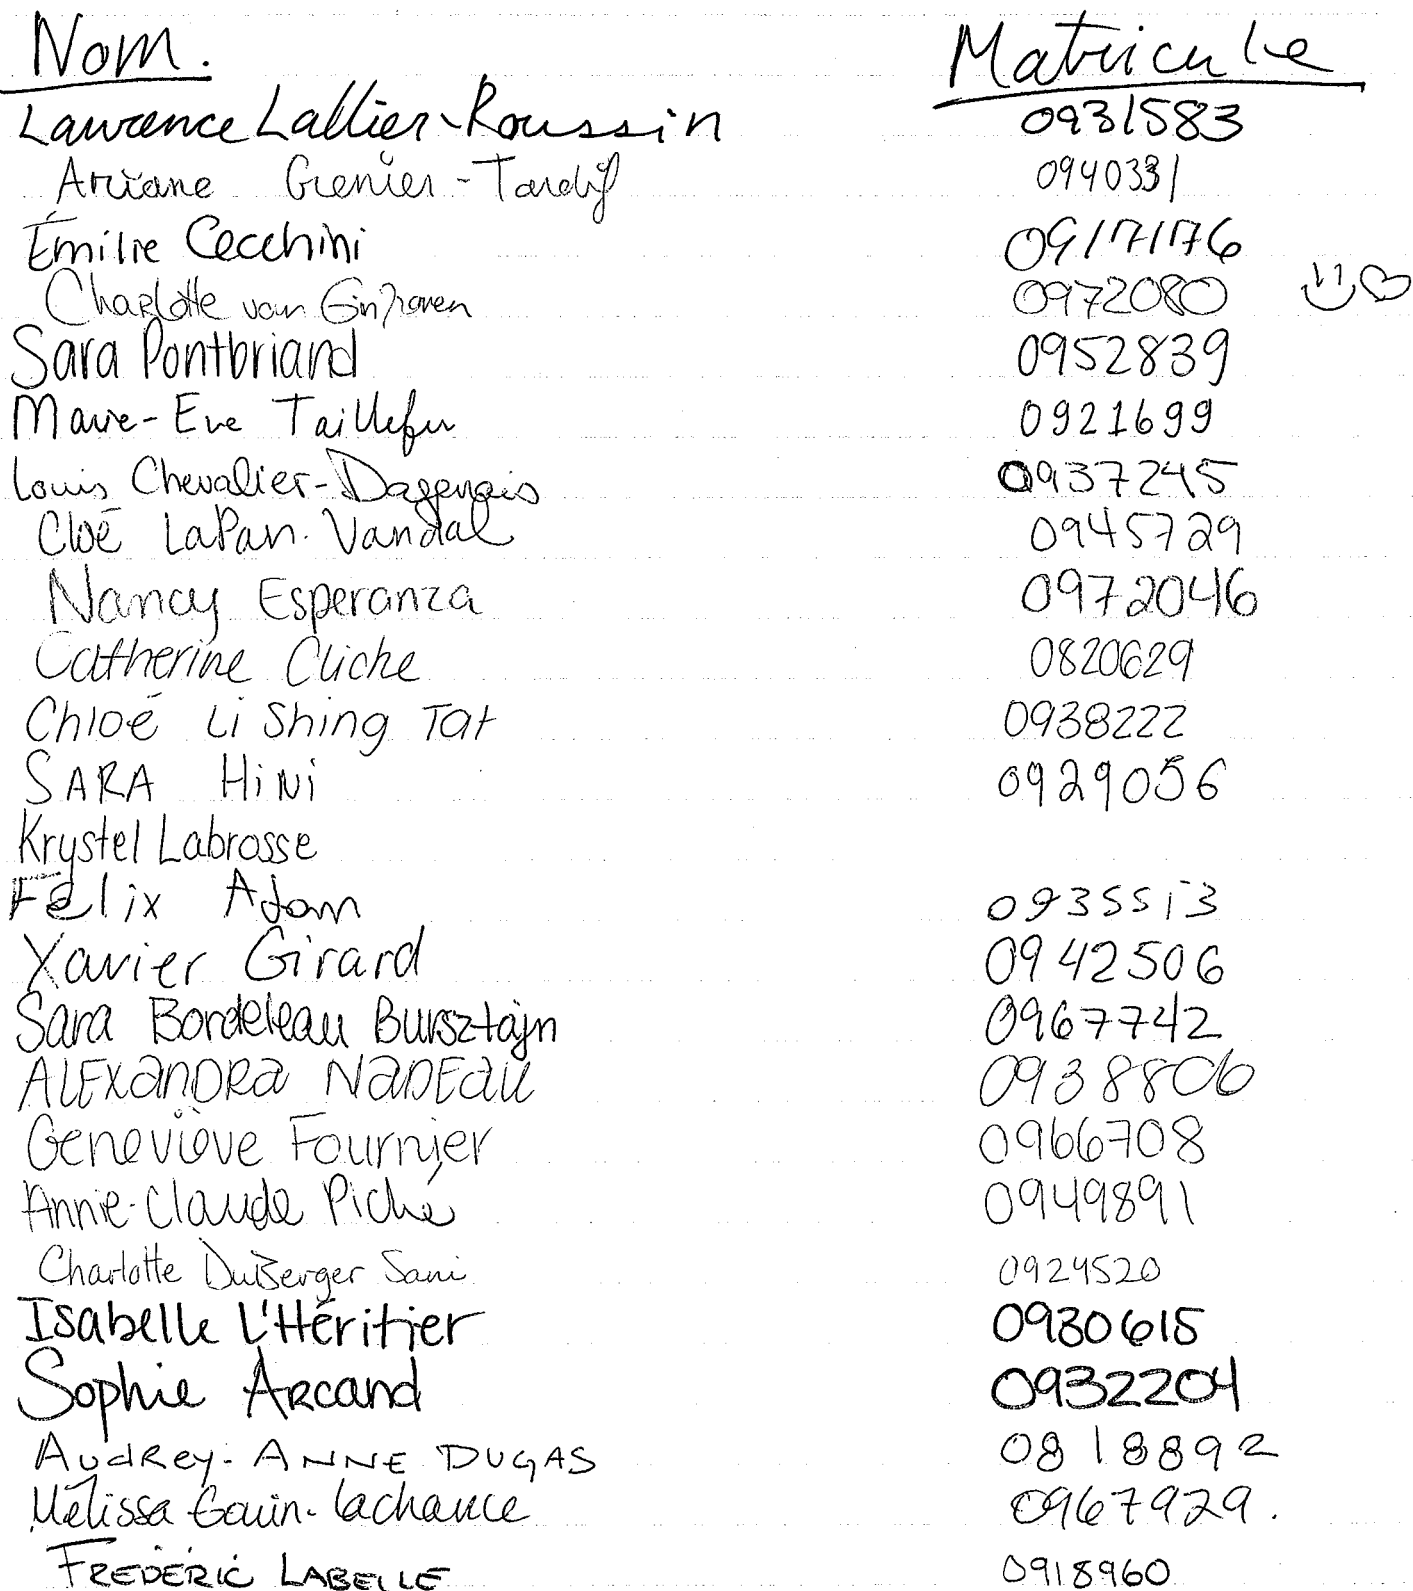 Nom. Matricule
Laurence Lallier-Roussin 0931583
Ariane Grenier-Tardif 0940331
Émilie Cecchini 0917176
Charlotte van Ginhoven 0972080
Sara Pontbriand 0952839
Marie-Eve Taillefer 0921699
Louis Chevalier-Dagenais 0937245
Cloé LaPan-Vandal 0945729
Nancy Esperanza 0972046
Catherine Cliche 0820629
Chloé Li Shing Tat 0938222
SARA HiNi 0929056
Krystel Labrosse
Félix Adam 0935513
Xavier Girard 0942506
Sara Bordeleau Bursztajn 0967742
ALEXANDRA NADEAU 0938806
Geneviève Fournier 0966708
Annie-Claude Piché 0949891
Charlotte DuBerger Sani 0924520
Isabelle L'Héritier 0930615
Sophie Arcand 0932204
AudRey-ANNE DUGAS 0818892
Mélissa Gouin-Lachance 0967929.
FRÉDÉRIC LABELLE 0918960